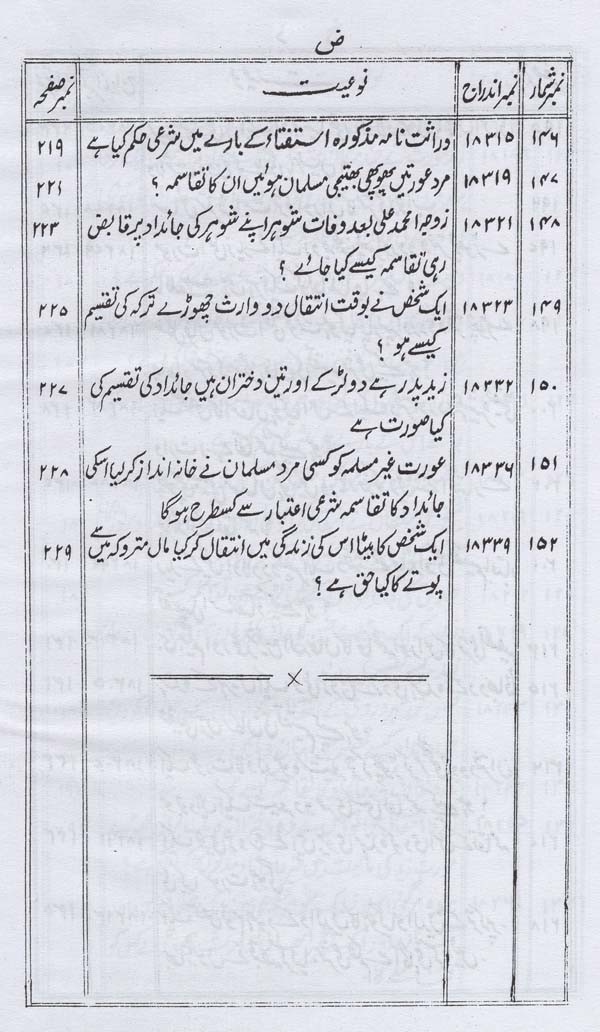 ض
نمبر شمار نمبر اندراج نوعیت نمبر صفحہ
۱۴۶ ۱۸۳۱۵ وراثت نامہ مذکورہ استفتاء کے بارے میں شرعی حکم کیا ہے ۲۱۹
۱۴۷ ۱۸۳۱۹ مرد عورتیں پھوپھی بھتیجی مسلمان ہوئیں ان کا تقاسمہ ؟ ۲۲۱
۱۴۸ ۱۸۳۲۱ زوجہ محمد علی بعد وفات شوہر اپنے شوہر کی جائداد پر قابض ۲۲۳
رہی تقاسمہ کیسے کیا جائے ؟
۱۴۹ ۱۸۳۲۳ ایک شخص نے بوقت انتقال دو وارث چھوڑے ترکہ کی تقسیم ۲۲۵
کیسے ہو ؟
۱۵۰ ۱۸۳۳۲ زید پدر ہے دو لڑکے اور تین دختران ہیں جائداد کی تقسیم کی ۲۲۷
کیا صورت ہے
۱۵۱ ۱۸۳۳۶ عورت غیر مسلمہ کو کسی مرد مسلمان نے خانہ انداز کر لیا اسکی ۲۲۸
جائداد کا تقاسمہ شرعی اعتبار سے کسطرح ہوگا
۱۵۲ ۱۸۳۳۹ ایک شخص کا بیٹا اس کی زندگی میں انتقال کر گیا مال متروکہ میں سے ۲۲۹
پوتے کا کیا حق ہے ؟